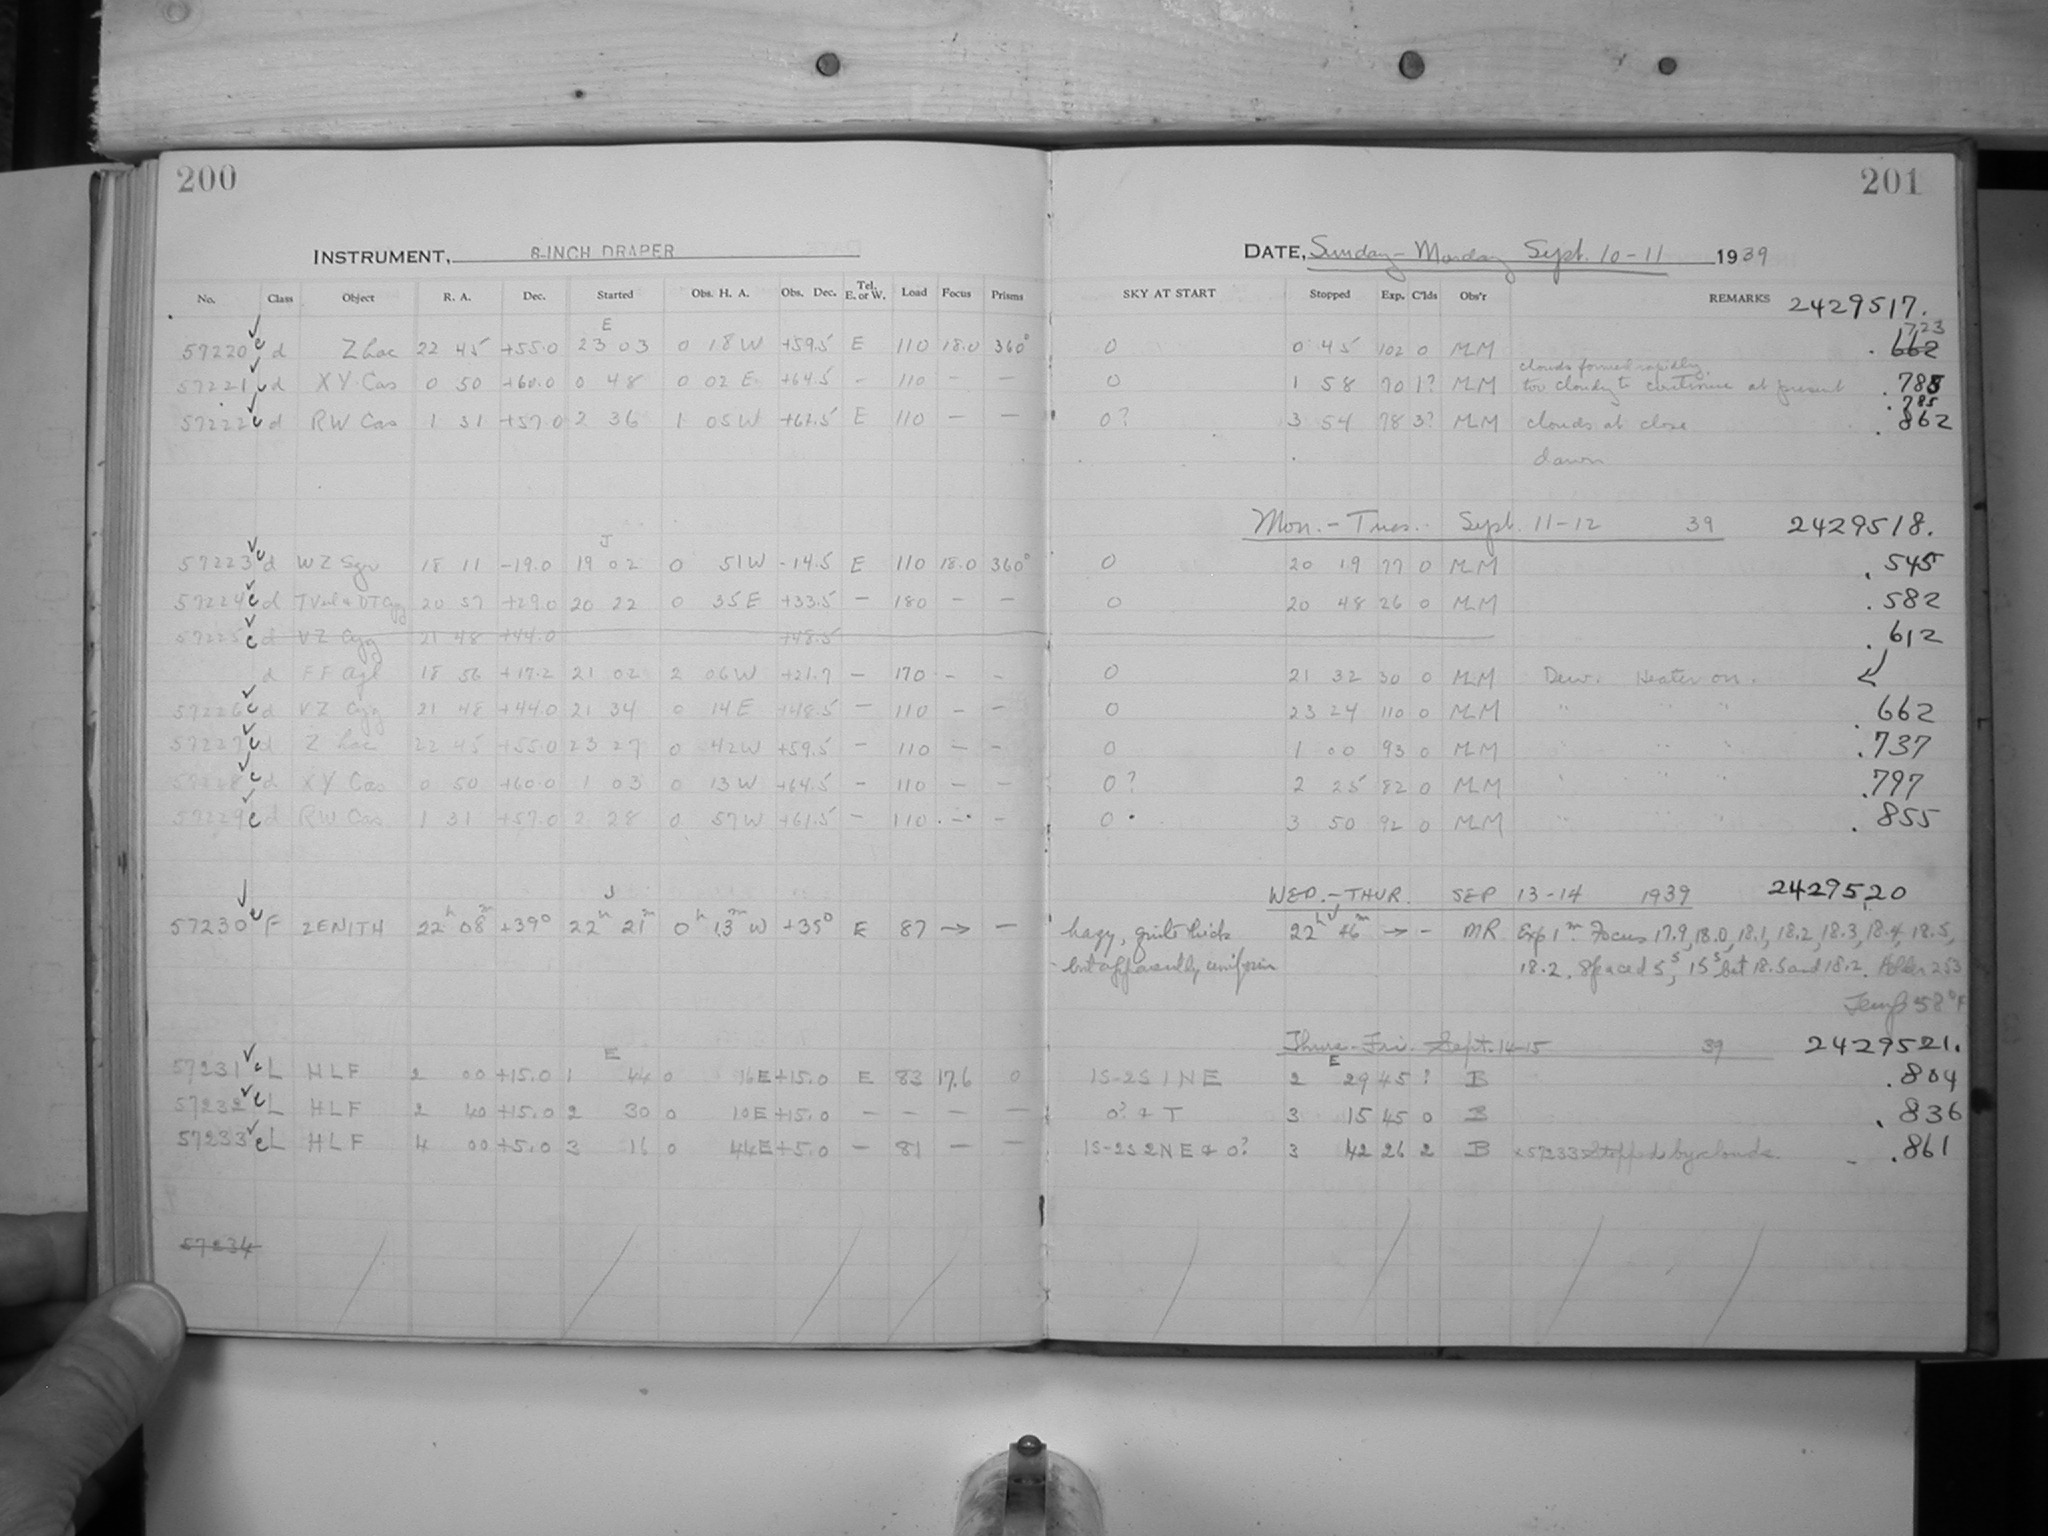 200
201
INSTRUMENT, 8-INCH DRAPER
DATE, Sunday - Monday Sept. 10-11 1939
No. Class Object R. A. Dec. Started Obs. H. A. Obs. Dec. Tel. E. or W. Load Focus Prisms SKY AT START Stopped Exp. C'lds Obs'r REMARKS 2429517.
E
57220 c d Z Lac 22 45 +55.0 23 03 0 18 W +59.5 E 110 18.0 360° 0 0 45 102 0 MM .662 723
clouds formed rapidly,
57221 c d XY Cas 0 50 +60.0 0 48 0 02 E +64.5 - 110 - - 0 1 58 70 1? MM too cloudy to continue at present .785
.785
57222 c d RW Cas 1 31 +57.0 2 36 1 05 W +61.5 E 110 - - 0? 3 54 78 3? MM clouds at close .862
dawn
Mon. - Tues. Sept. 11-12 39 2429518.
J
57223 c d WZ Sgr 18 11 -19.0 19 02 0 51 W -14.5 E 110 18.0 360° 0 20 19 77 0 MM .545
57224 c d TVul & DT Cyg 20 57 +29.0 20 22 0 35 E +33.5 - 180 - - 0 20 48 26 0 MM .582
57225 c d VZ Cyg 21 48 +44.0 +48.5 .612
d FF Aql 18 56 +17.2 21 02 2 06 W +21.7 - 170 - - 0 21 32 30 0 MM Dew. Heater on.
57226 c d VZ Cyg 21 48 +44.0 21 34 0 14 E +48.5 - 110 - - 0 23 24 110 0 MM " " " .662
57227 c d Z Lac 22 45 +55.0 23 27 0 42 W +59.5 - 110 - - 0 1 00 93 0 MM " " " .737
57228 c d XY Cas 0 50 +60.0 1 03 0 13 W +64.5 - 110 - - 0? 2 25 82 0 MM " " " .797
57229 c d RW Cas 1 31 +57.0 2 28 0 57 W +61.5 - 110 - - 0 3 50 92 0 MM " " " .855
WED. - THUR. SEP 13-14 1939 2429520
J
57230 c F ZENITH 22h 08m +39° 22h 21m 0h 13m W +35° E 87 → - hazy, quite thick 22h 46m → - MR Exp 1m. Focus 17.9, 18.0, 18.1, 18.2, 18.3, 18.4, 18.5,
but apparently uniform 18.2. Spaced 5s, 15s bet 18.5 and 18.2. Holder 253
Temp 58°F
Thurs - Fri. Sept. 14-15 39 2429521.
E E
57231 c L HLF 2 00 +15.0 1 44 0 16 E +15.0 E 83 17.6 0 1S-2S 1NE 2 29 45 ? B .804
57232 c L HLF 2 40 +15.0 2 30 0 10 E +15.0 - - - - 0? & T 3 15 45 0 B .836
57233 c L HLF 4 00 +5.0 3 16 0 44 E +5.0 - 81 - - 1S-2S 2NE & 0? 3 42 26 2 B x57233 stopped by clouds. .861
57234